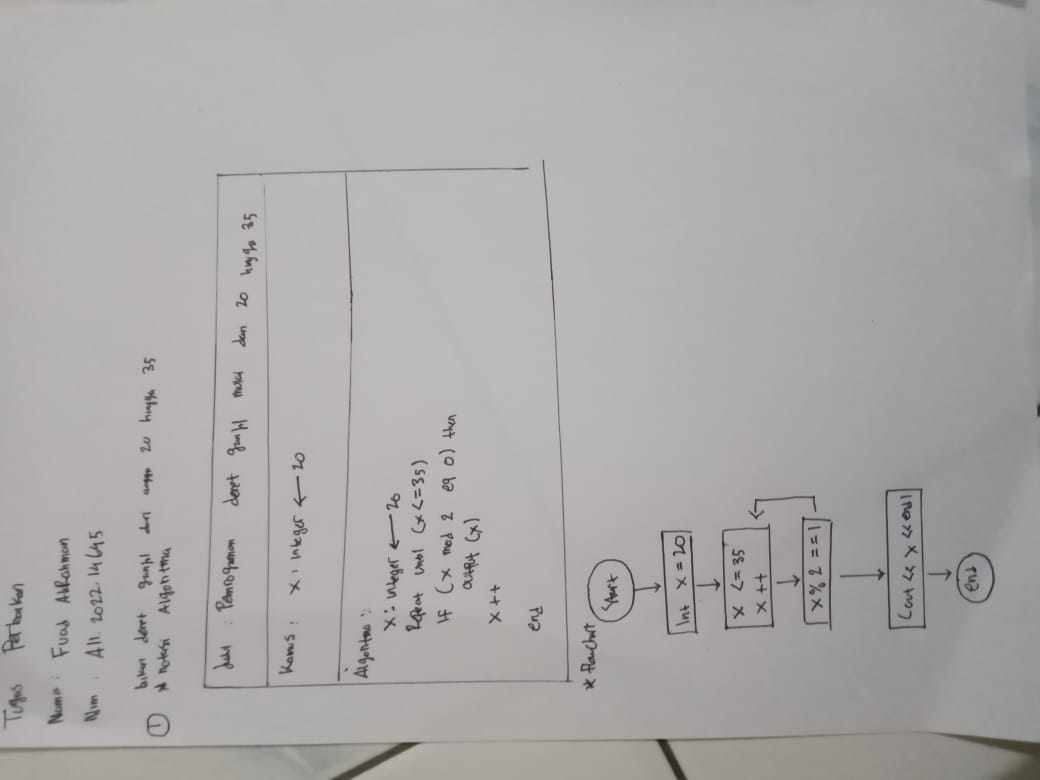 Tugas Perbaikan
Nama : Fuad AbRahman
Nim : A11.2022.14645
① bikin deret ganjil dari angga 20 hingga 35
* notasi Algoritma
Judul : Pemrograman deret ganjil mulai dari 20 hingga 35
Kamus : x : integer ← 20
Algoritma :
x : integer ← 20
Repeat until (x <= 35)
If (x mod 2 eq 0) then
output (x)
x ++
end
* flowchart
Start
Int x = 20
x <= 35
x ++
x % 2 == 1
Cout << x << endl
end